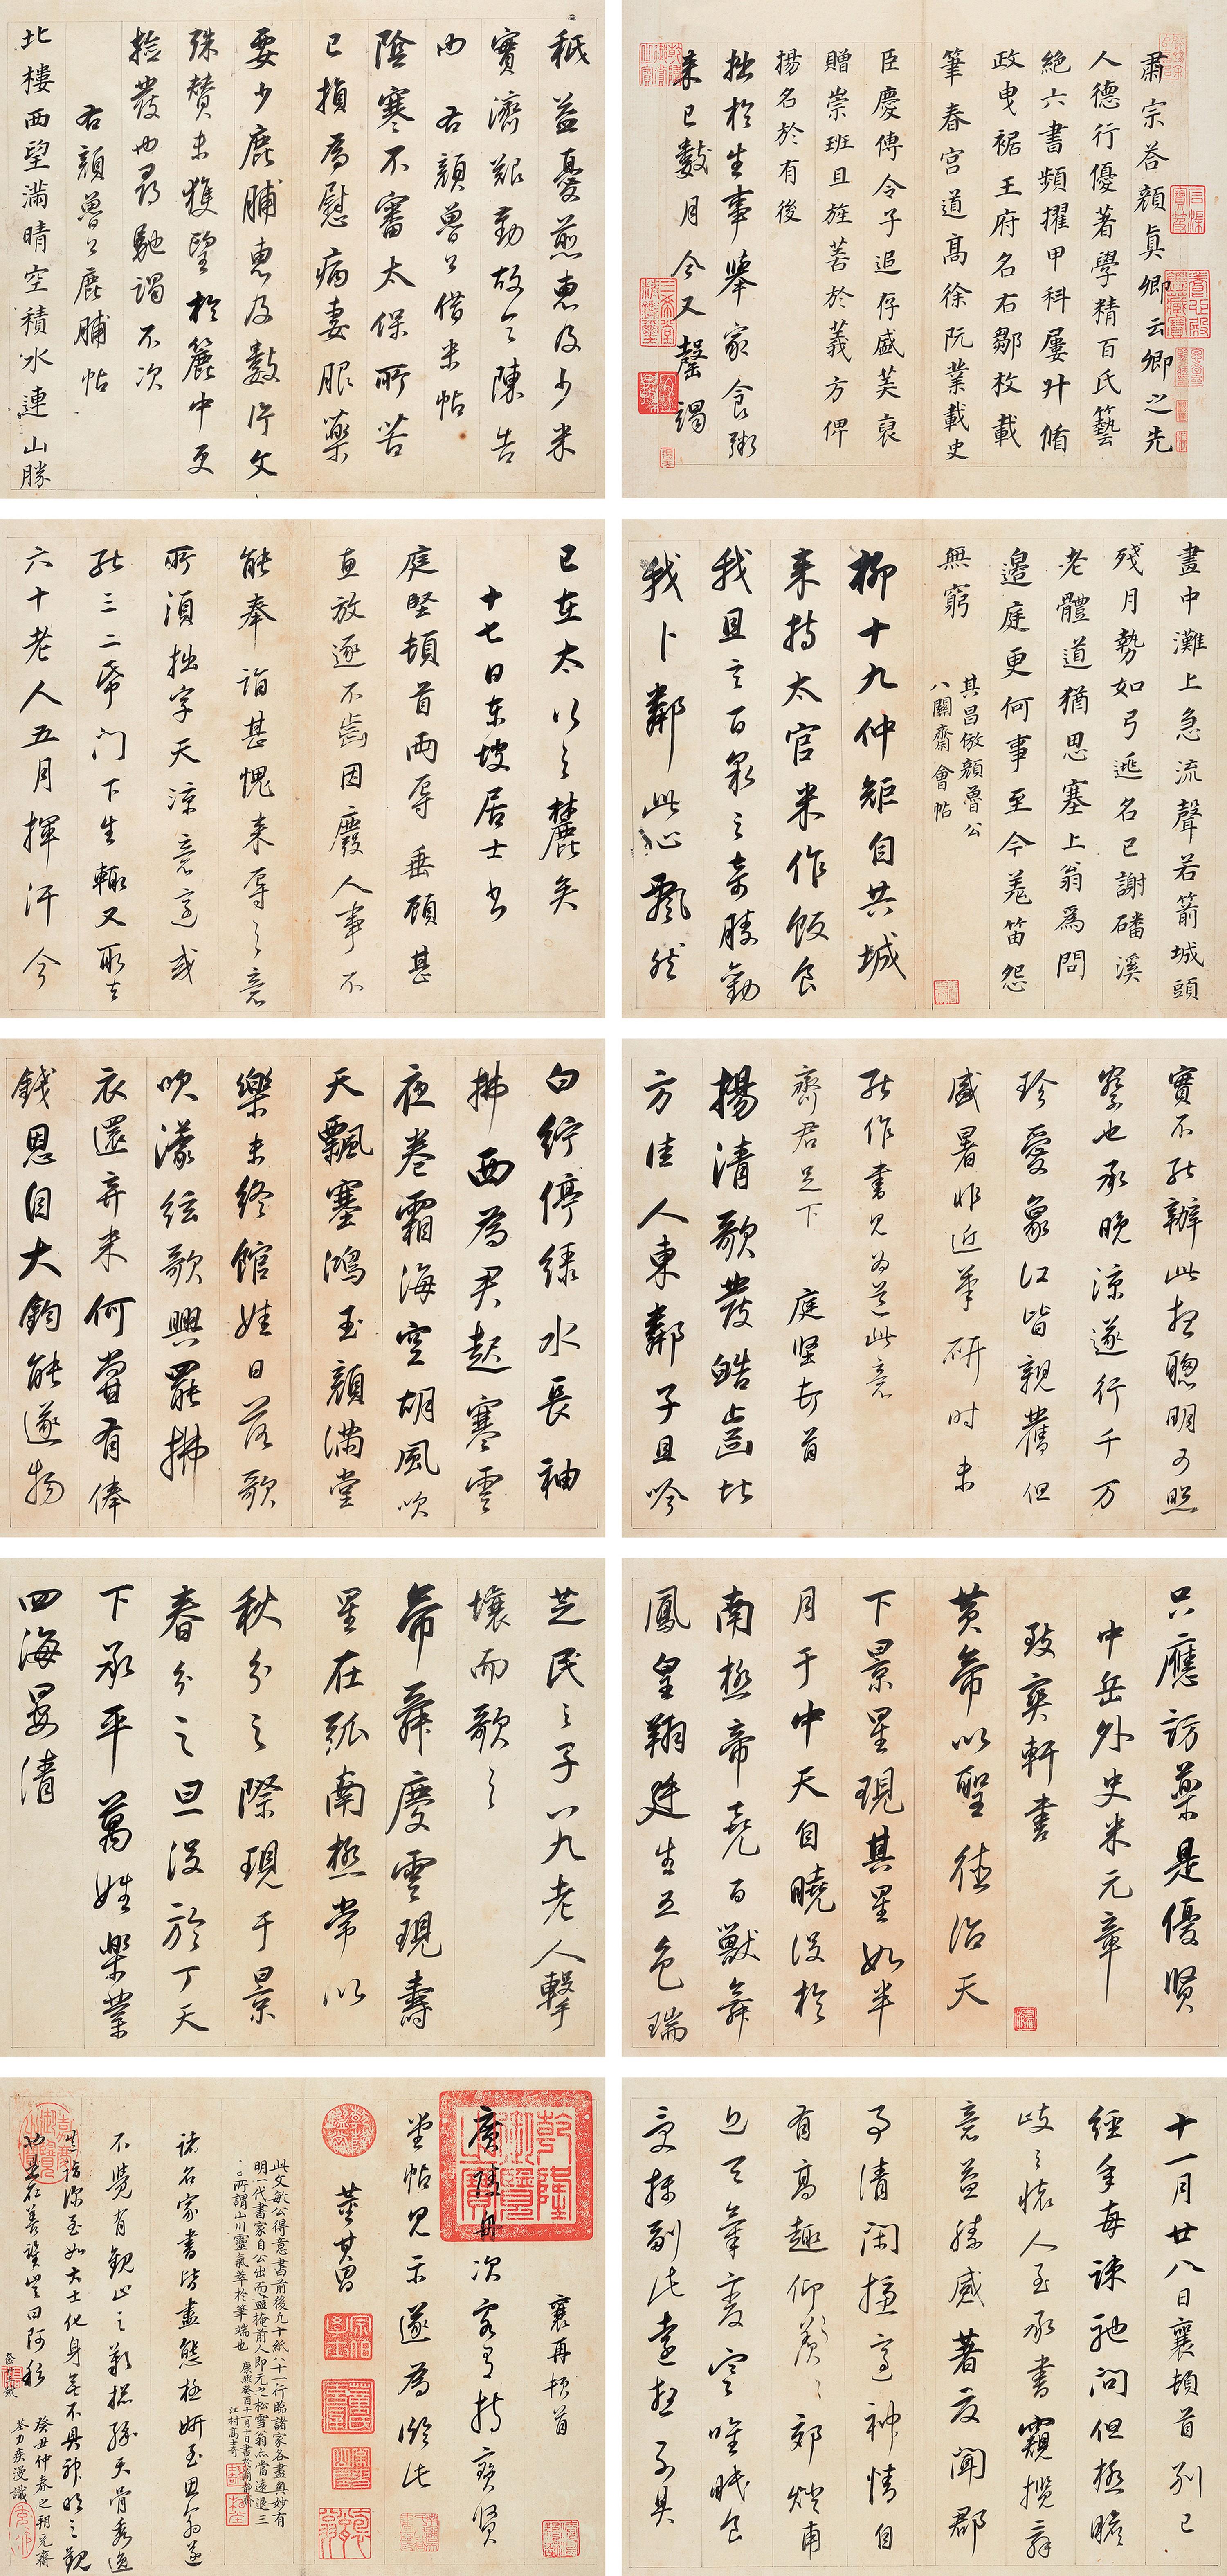 肅宗荅顏真卿云卿之先
人德行優著學精百氏藝
絕六書頻擢甲科屢升循
政曳裾王府名右鄒枚載
筆春宮道高徐阮業載史
臣慶傳令子追存盛美裒
贈崇班且旌善於義方俾
揚名於有後
拙於生事舉家食粥
來已數月今又罄竭
秖益憂煎惠及少米
實濟艱勤故令陳告
右顏魯公借米帖
陰寒不審太保所苦
已損為慰病妻服藥
要少鹿脯惠及數片文
殊贊未獲望於簏中更
撿發也尋馳謁不次
右顏魯公鹿脯帖
北樓西望滿晴空積水連山勝
畫中灘上急流聲若箭城頭
殘月勢如弓逃名已謝磻溪
老體道猶思塞上翁為問
邊庭更何事至今羗笛怨
無窮
其昌倣顏魯公
八關齋會帖
柳十九仲矩自共城
來持太官米作飯食
我且言百泉之奇勝勸
我卜鄰此心飄然
已在太行之麓矣
十七日東坡居士書
庭堅頓首兩辱垂顧甚
直放逐不齒因廢人事不
能奉詣甚愧來辱之意
所須拙字天涼意適或
能三二紙門下生輒又取去
六十老人五月揮汗今
實不能辦此想聰明可照
察也承晚涼遂行千万
珍愛象江皆親舊但
盛暑非近筆研時未
能作書見為道此意
齊君足下 庭堅頓首
揚清歌發皓齒北
方佳人東鄰子且吟
白紵停綠水長袖
拂面為君起寒雲
夜卷霜海空胡風吹
天飄塞鴻玉顏滿堂
樂未終館娃日落歌
吹濛絃歌興罷拂
衣還弃來何嘗有俸
錢恩自大鈞能遂物
只應訪藥是優賢
中岳外史米元章
致爽軒書
黃帝以聖德治天
下景星現其星如半
月于中天自曉沒於
南極帝堯百獸舞
鳳皇翔廷生五色瑞
芝民之子八九老人擊
壤而歌之
帝舜慶雲現壽
星在弧南極常以
秋分之際現于景
春分之旦沒於丁天
下承平萬姓樂業
四海晏清
十一月廿八日襄頓首別已
經年每疎馳問但極瞻
人至承書竊攬辭
意益感著夜聞郡
清閑神情自
有高趣仰羨郊燧甫
近天氣唯眠食
副此遠想不具
襄再頓首
廣陵舟次客有持寶賢
堂帖見示遂為臨此
董其昌
此文敏公得意書前後九十紙八十一行臨諸家各盡奥妙有
明一代書家自公出而盡掩前人即元之松雪翁亦當遠退三
舍所謂山川靈氣萃於筆端也 康熙癸酉十一月十日書於簡靜齋
江村高士奇
諸名家書皆盡態極妍至思翁遂
不覺有觀止之歎天骨秀逸
如大士化身無不具
癸丑仲春之朔